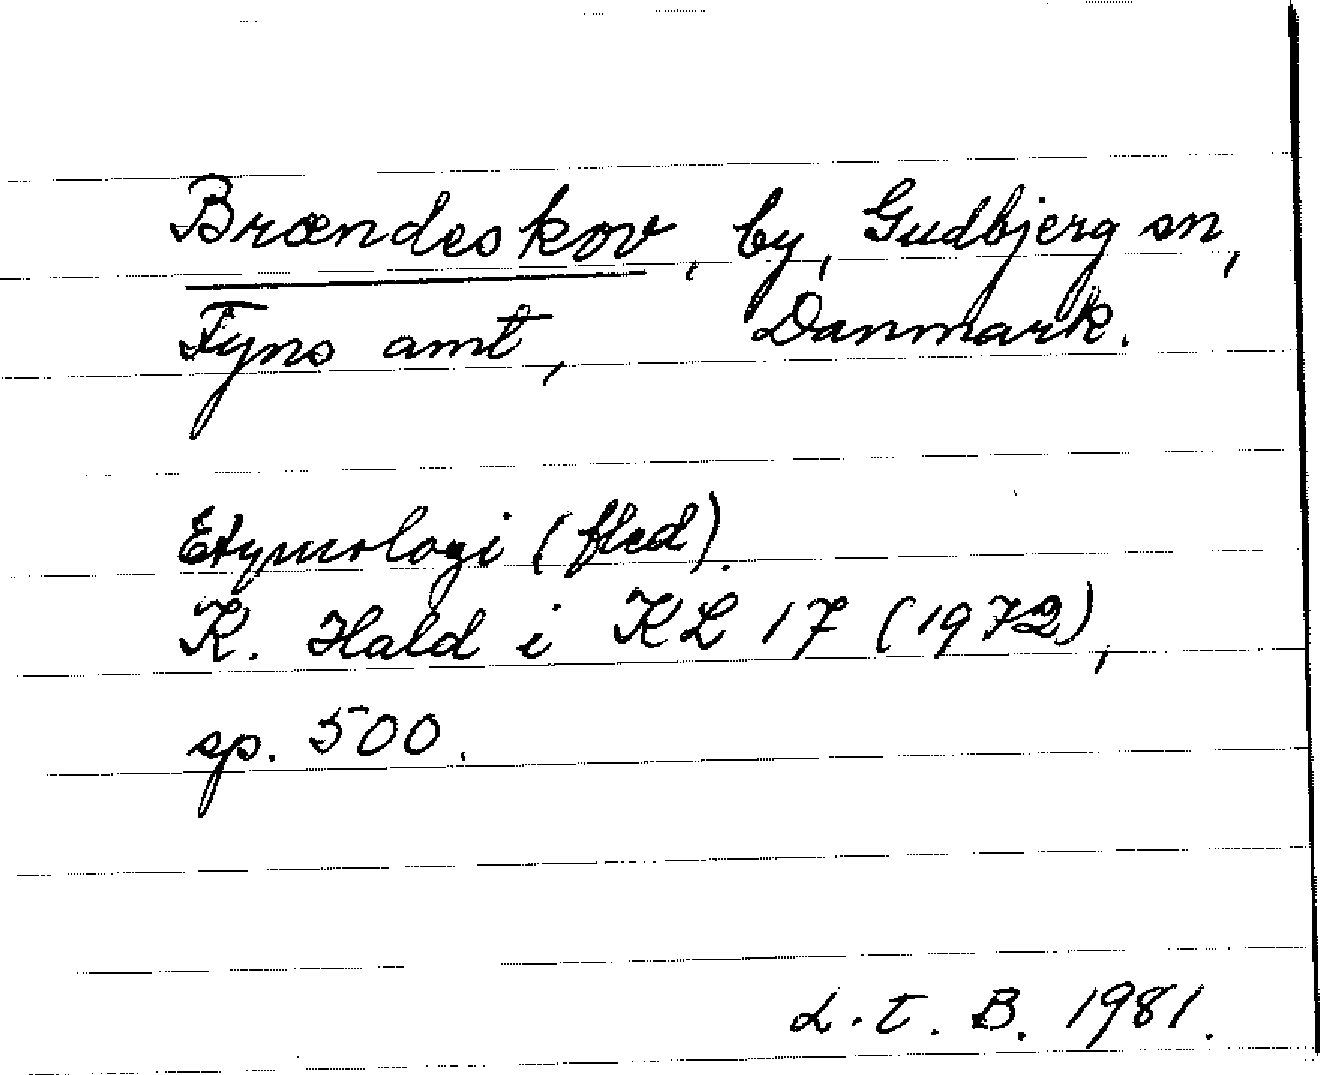 Brændeskov, by, Gudbjerg sn,
Fyns amt, Danmark.
Etymologi (fled).
K. Hald i KL 17 (1972),
sp. 500.
L.t.B. 1981.